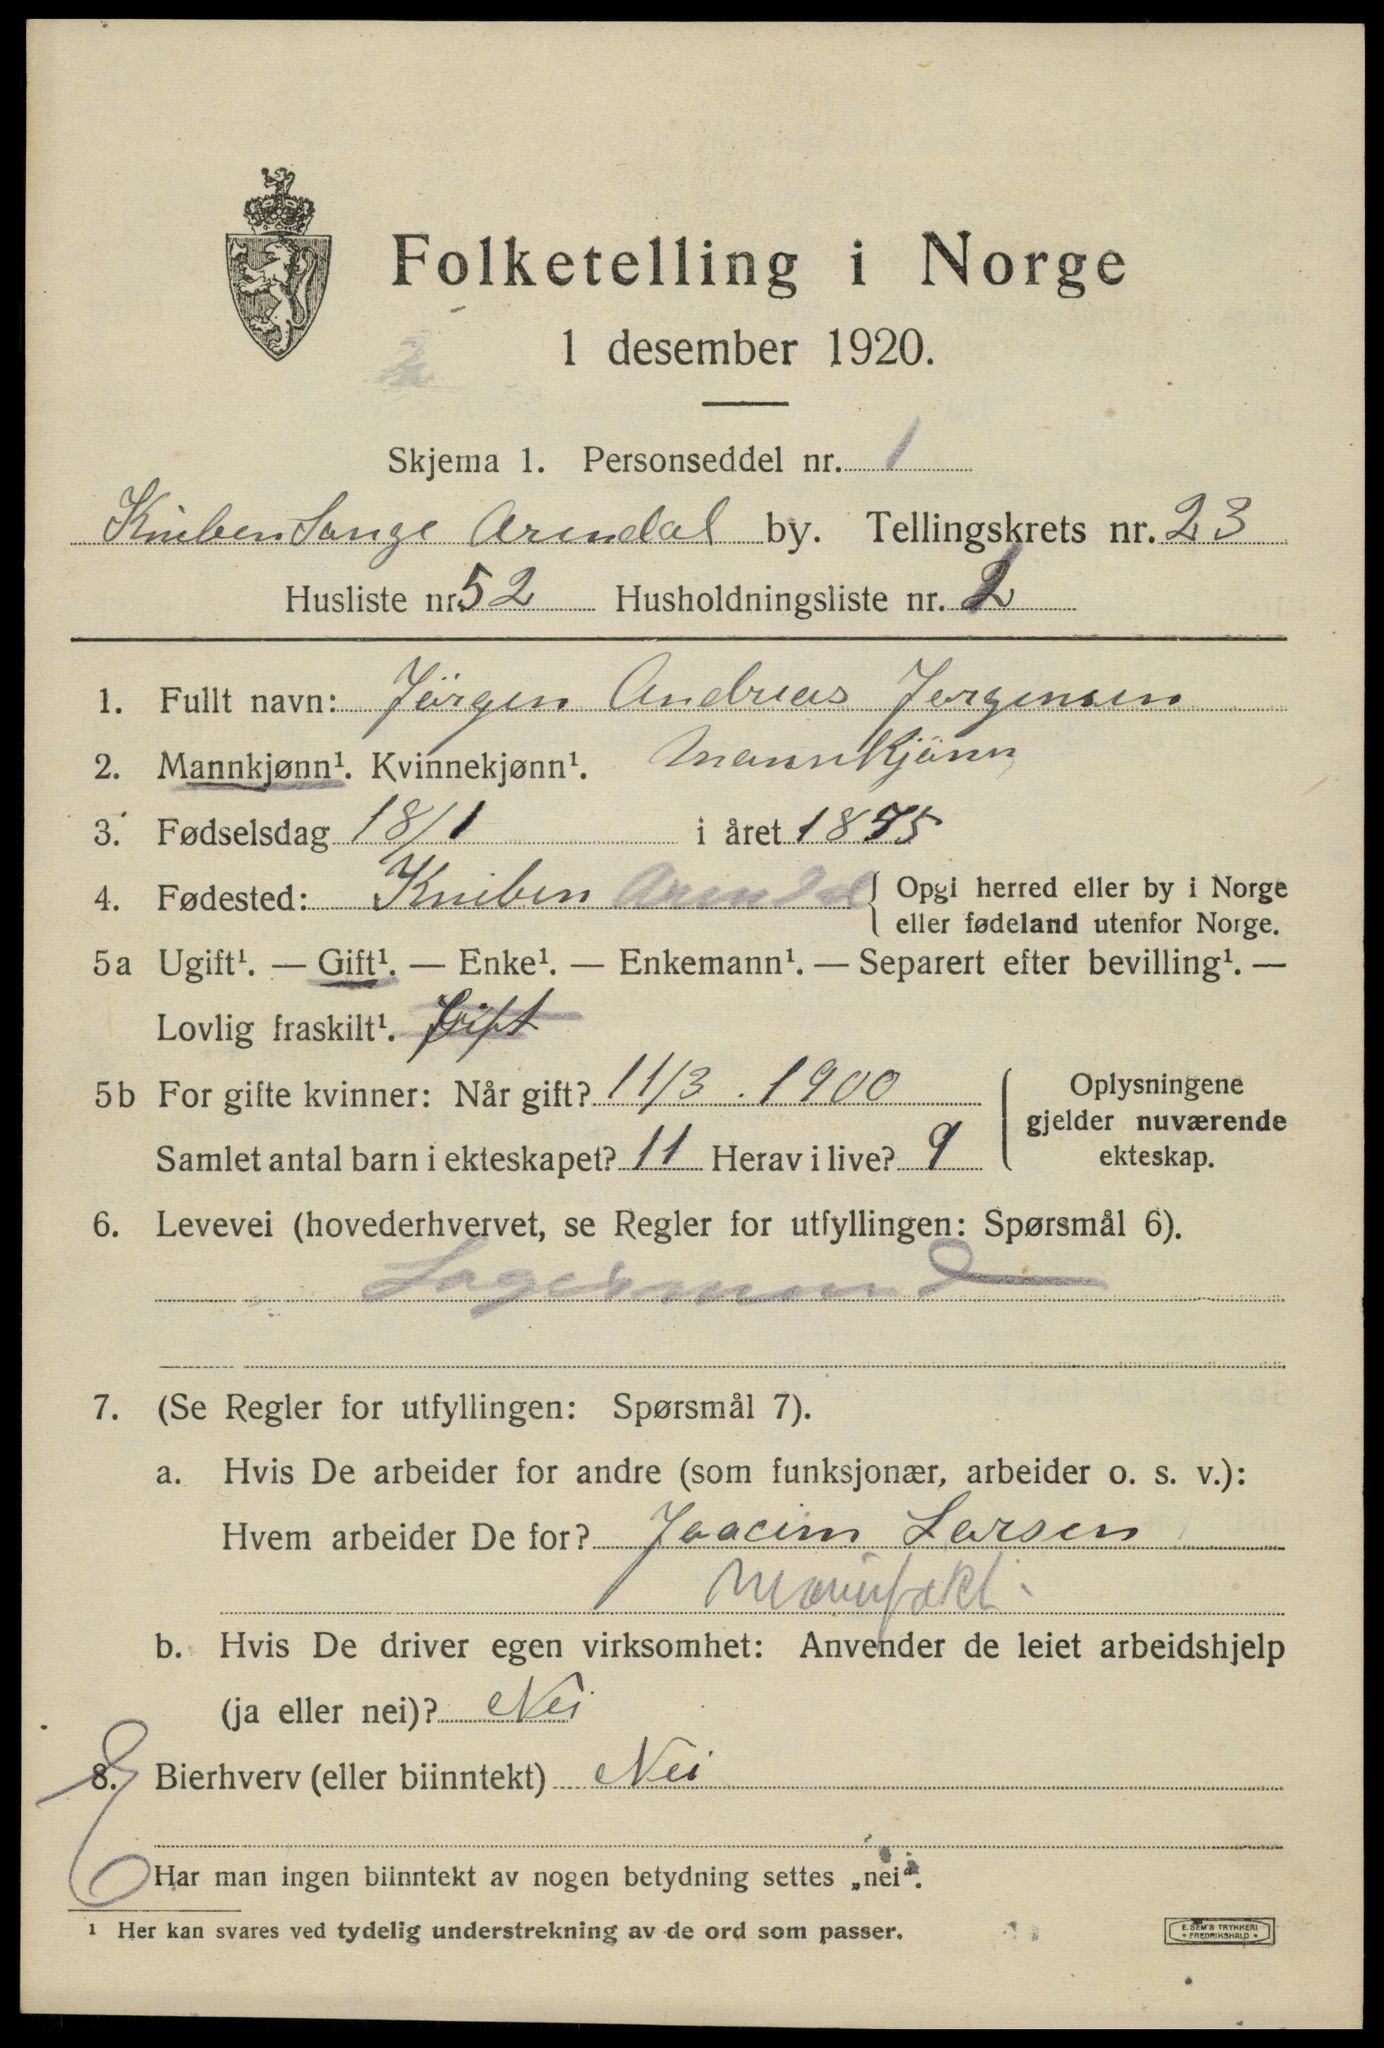 Folketelling i Norge
1 desember 1920.
Skjema 1. Personseddel nr. 1
Kniben Songe Arendal by. Tellingskrets nr. 23
Husliste nr. 52 Husholdningsliste nr. 2
1. Fullt navn: Jörgen Andreas Jorgensen
2. Mannkjønn¹. Kvinnekjønn¹. Mannkjönn
3. Fødselsdag 18/1 i året 1875
4. Fødested: Kniben Arendal Opgi herred eller by i Norge
eller fødeland utenfor Norge.
5a Ugift¹. — Gift¹. — Enke¹. — Enkemann¹. — Separert efter bevilling¹. —
Lovlig fraskilt¹. Gift
5b For gifte kvinner: Når gift? 11/3. 1900
Samlet antal barn i ekteskapet? 11 Herav i live? 9
Oplysningene
gjelder nuværende
ekteskap.
6. Levevei (hovederhvervet, se Regler for utfyllingen: Spørsmål 6).
Lagermand
7. (Se Regler for utfyllingen: Spørsmål 7).
a. Hvis De arbeider for andre (som funksjonær, arbeider o. s. v.):
Hvem arbeider De for? Joacim Larsen
Manufakt.
b. Hvis De driver egen virksomhet: Anvender de leiet arbeidshjelp
(ja eller nei)? Nei
8. Bierhverv (eller biinntekt) Nei
Har man ingen biinntekt av nogen betydning settes „nei“.
¹ Her kan svares ved tydelig understrekning av de ord som passer.
E. SEM'S TRYKKERI
FREDRIKSHALD